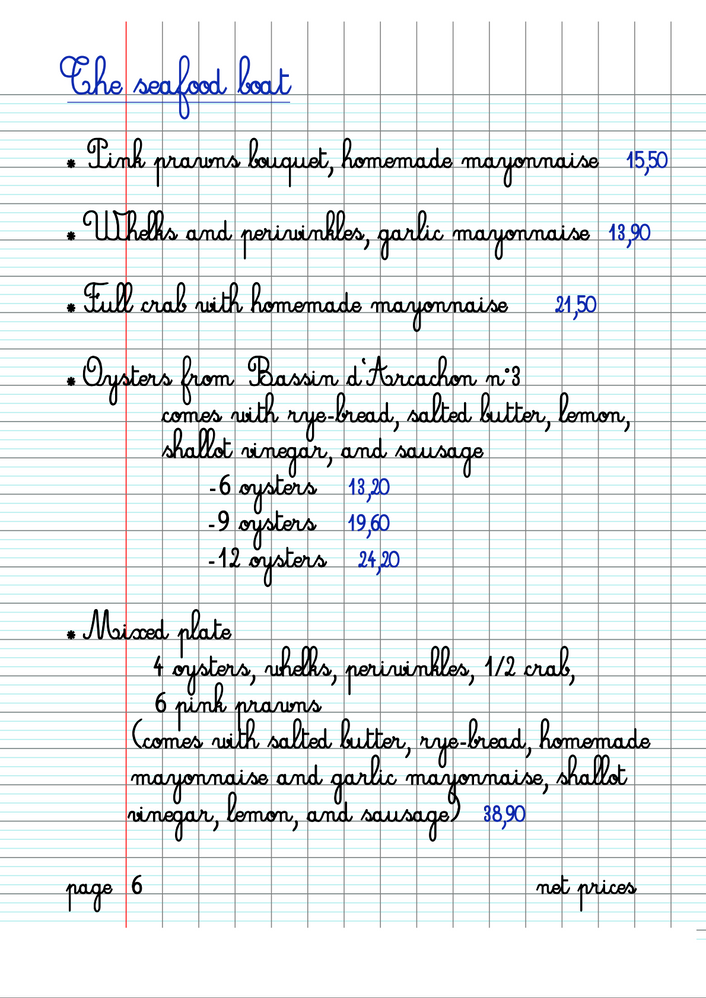 The seafood boat
* Pink prawns bouquet, homemade mayonnaise 15,50
* Whelks and periwinkles, garlic mayonnaise 13,90
* Full crab with homemade mayonnaise 21,50
* Oysters from Bassin d'Arcachon n°3
comes with rye-bread, salted butter, lemon,
shallot vinegar, and sausage
-6 oysters 13,20
-9 oysters 19,60
-12 oysters 24,20
* Mixed plate
4 oysters, whelks, periwinkles, 1/2 crab,
6 pink prawns
(comes with salted butter, rye-bread, homemade
mayonnaise and garlic mayonnaise, shallot
vinegar, lemon, and sausage) 38,90
page 6 net prices